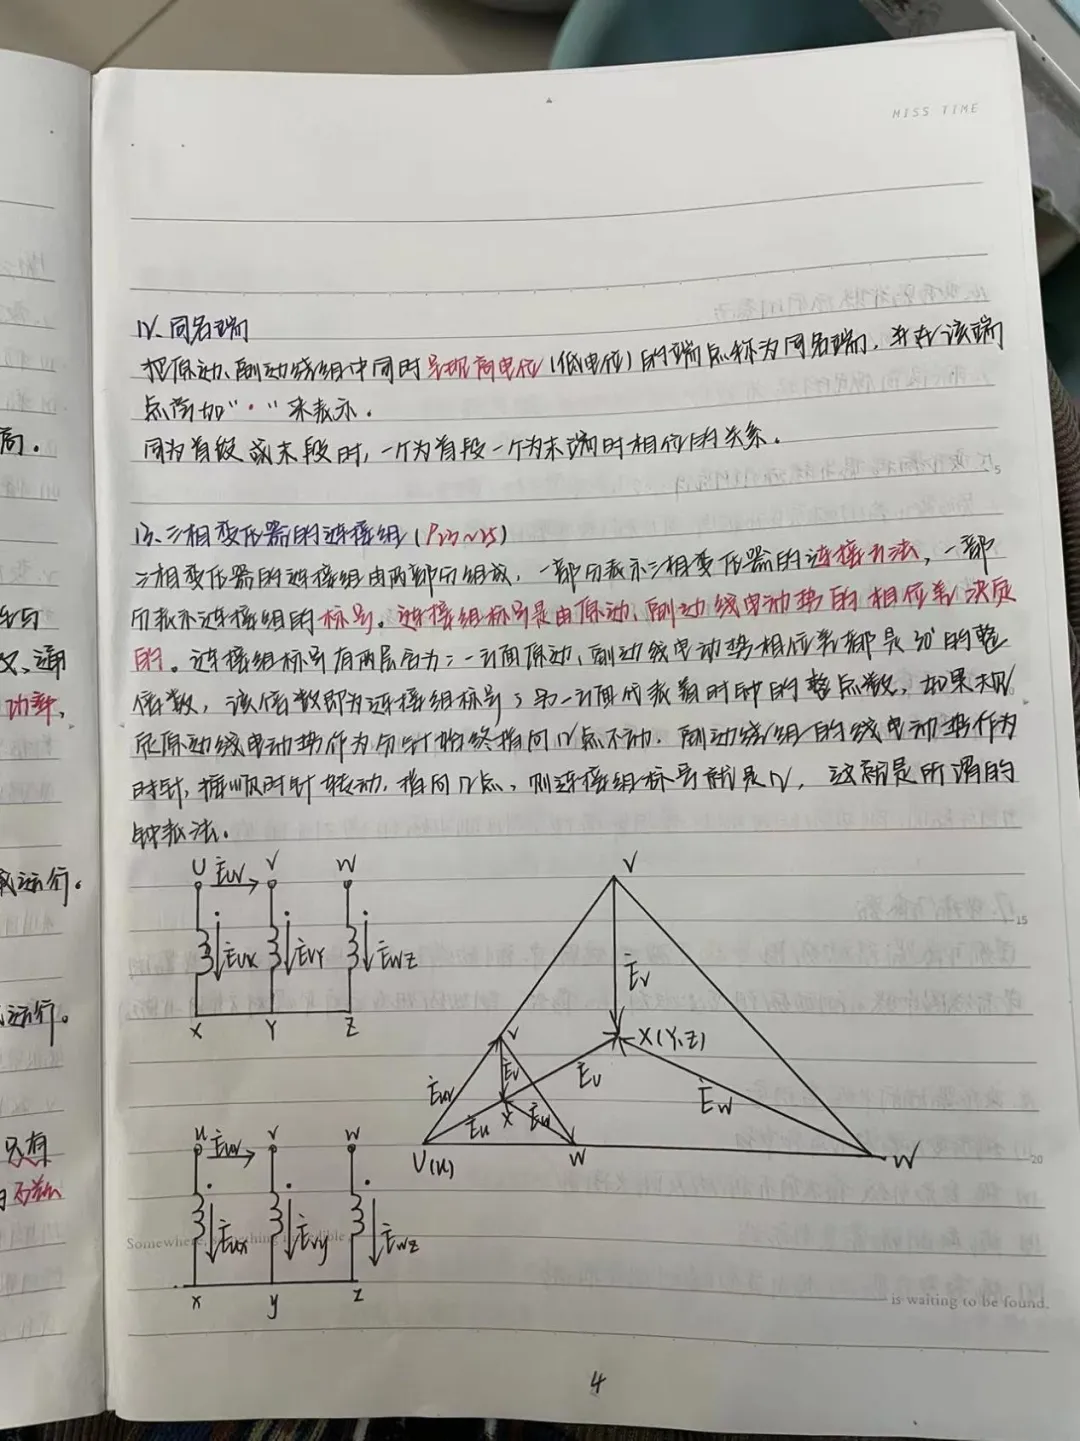 MISS TIME
12、同名端
把原动、副动绕组中同时呈现高电位(低电位)的端点称为同名端，并在该端
点旁加“·”来表示。
同为首段或末段时，一个为首段一个为末端时相位的关系。
5
13、三相变压器的连接组(P23~25)
三相变压器的连接组由两部分组成，一部分表示三相变压器的连接方法，一部
分表示连接组的标号。连接组标号是由原动、副动线电动势的相位差决定
的。连接组标号有两层含为：一方面原动、副动线电动势相位差都是30°的整
倍数，该倍数即为连接组标号；另一方面代表着时钟的整点数，如果规
定原动线电动势作为分针始终指向12点不动，副动绕组的线电动势作为
时针，按顺时针转动，指向12点，则连接组标号就是12，这就是所谓的
钟表法。
U Ėuv V W
Ėux Ėvy Ėwz
X Y Z
u Ėuv v w
Ėux Ėvy Ėwz
x y z
V
Ėv
X(Y,Z)
v
Ėuv Ėv Ėu Ėw
Ėu X Ėw
U(u) w W
15
20
Somewhere, something incredible
is waiting to be found.
4
局。
功率，
载运行。
运行。
只有